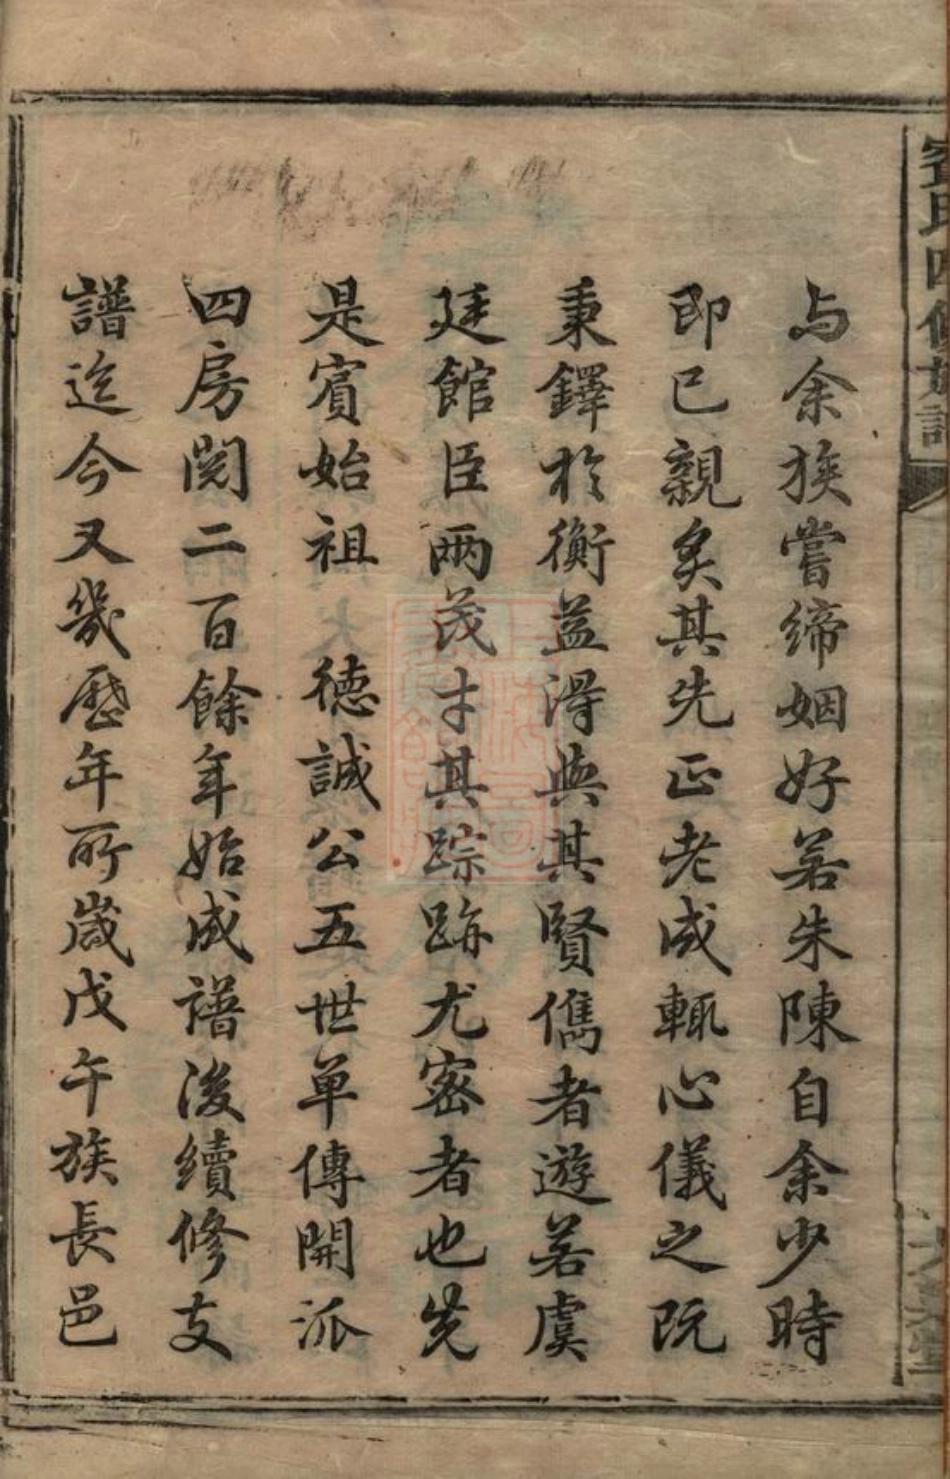 与余族嘗締姻好若朱陳自余少時
即已親炙其先正老成輒心儀之阮
秉鐸於衡益得與其賢儁者遊若虞
廷館臣兩茂才其踪跡尤密者也先
是賓始祖　德誠公五世单傳開派
四房閱二百餘年始成譜後續修支
譜迄今又幾歷年所歲戊午族長邑